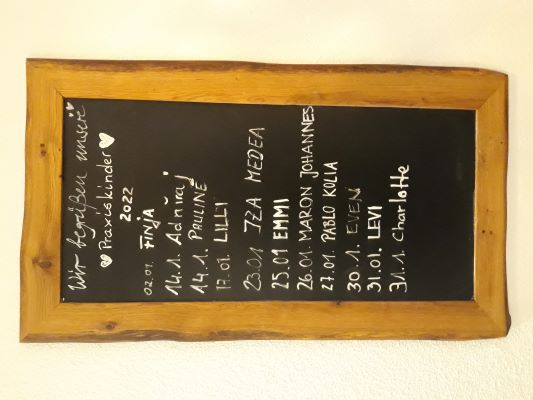 Wir begrüßen unsere
Praxiskinder
2022
02.01. Finja
14.1. Adniraj
14.1. PAULINE
17.01. LILLI
23.01 IZA MEDEA
25.01 EMMI
26.01. MARON JOHANNES
27.01. PABLO KOLLA
30.1. EVEN
31.01. LEVI
31.1. Charlotte